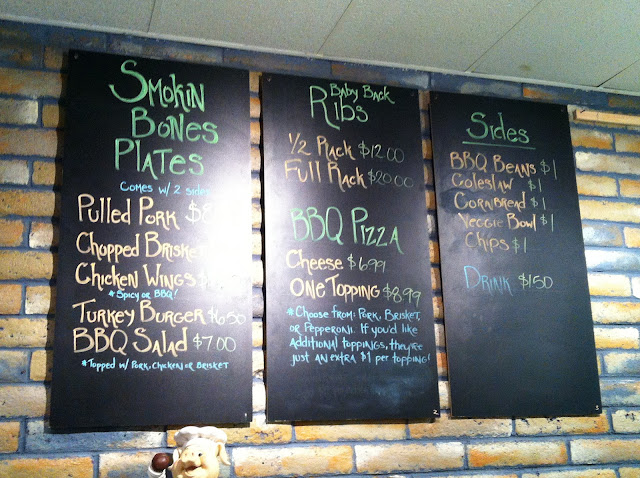 Smokin
Bones
Plates
Comes w/ 2 sides
Pulled Pork
Chopped Brisket
Chicken Wings
*Spicy or BBQ!
Turkey Burger $6.50
BBQ Salad $7.00
*Topped w/ Pork, Chicken or Brisket
Baby Back
Ribs
1/2 Rack $12.00
Full Rack $20.00
BBQ Pizza
Cheese $6.99
One Topping $8.99
*Choose from: Pork, Brisket,
or Pepperoni. If you'd like
additional toppings, they're
just an extra $1 per topping!
2
Sides
BBQ Beans $1
Coleslaw $1
Cornbread $1
Veggie Bowl $1
Chips $1
Drink $1.50
3